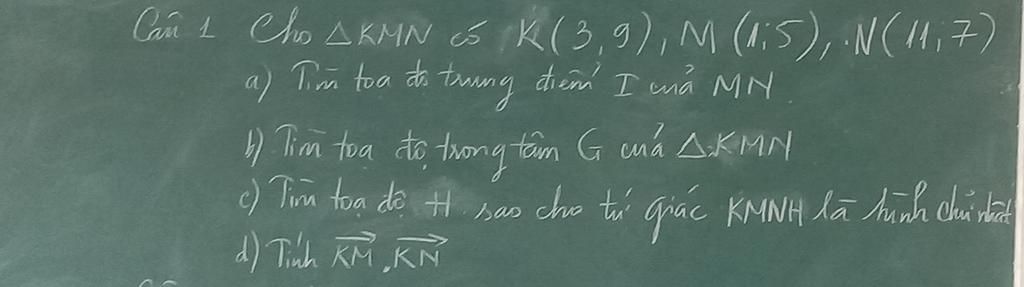 Câu 1 Cho △KMN có K(3,9), M(1;5), N(11;7)
a) Tìm toạ độ trung điểm I của MN
b) Tìm toạ độ trọng tâm G của △KMN
c) Tìm toạ độ H sao cho tứ giác KMNH là hình chữ nhật
d) Tính \overrightarrow{KM}.\overrightarrow{KN}